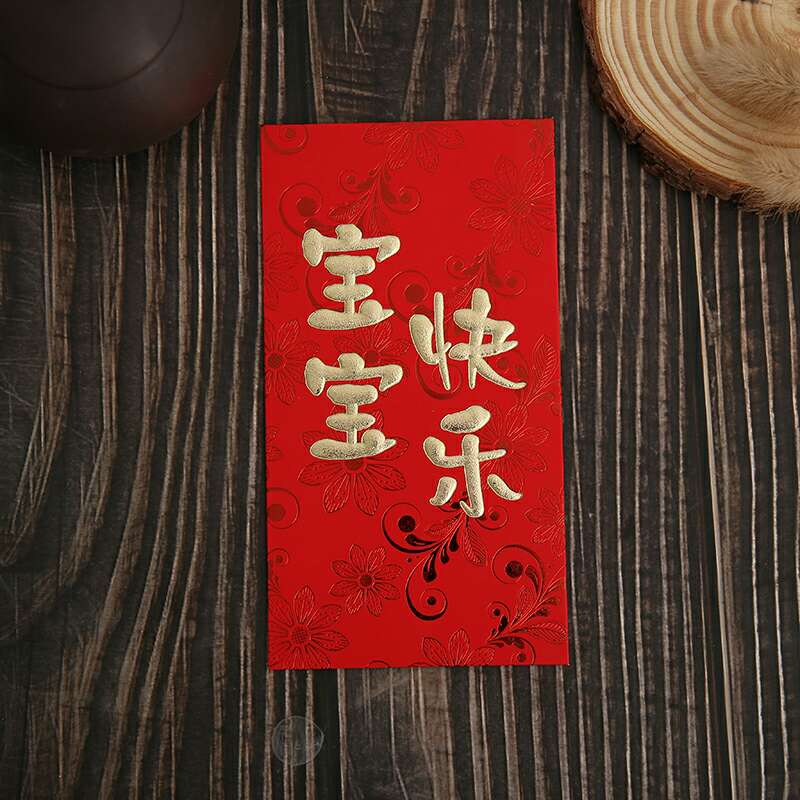 宝宝
快乐